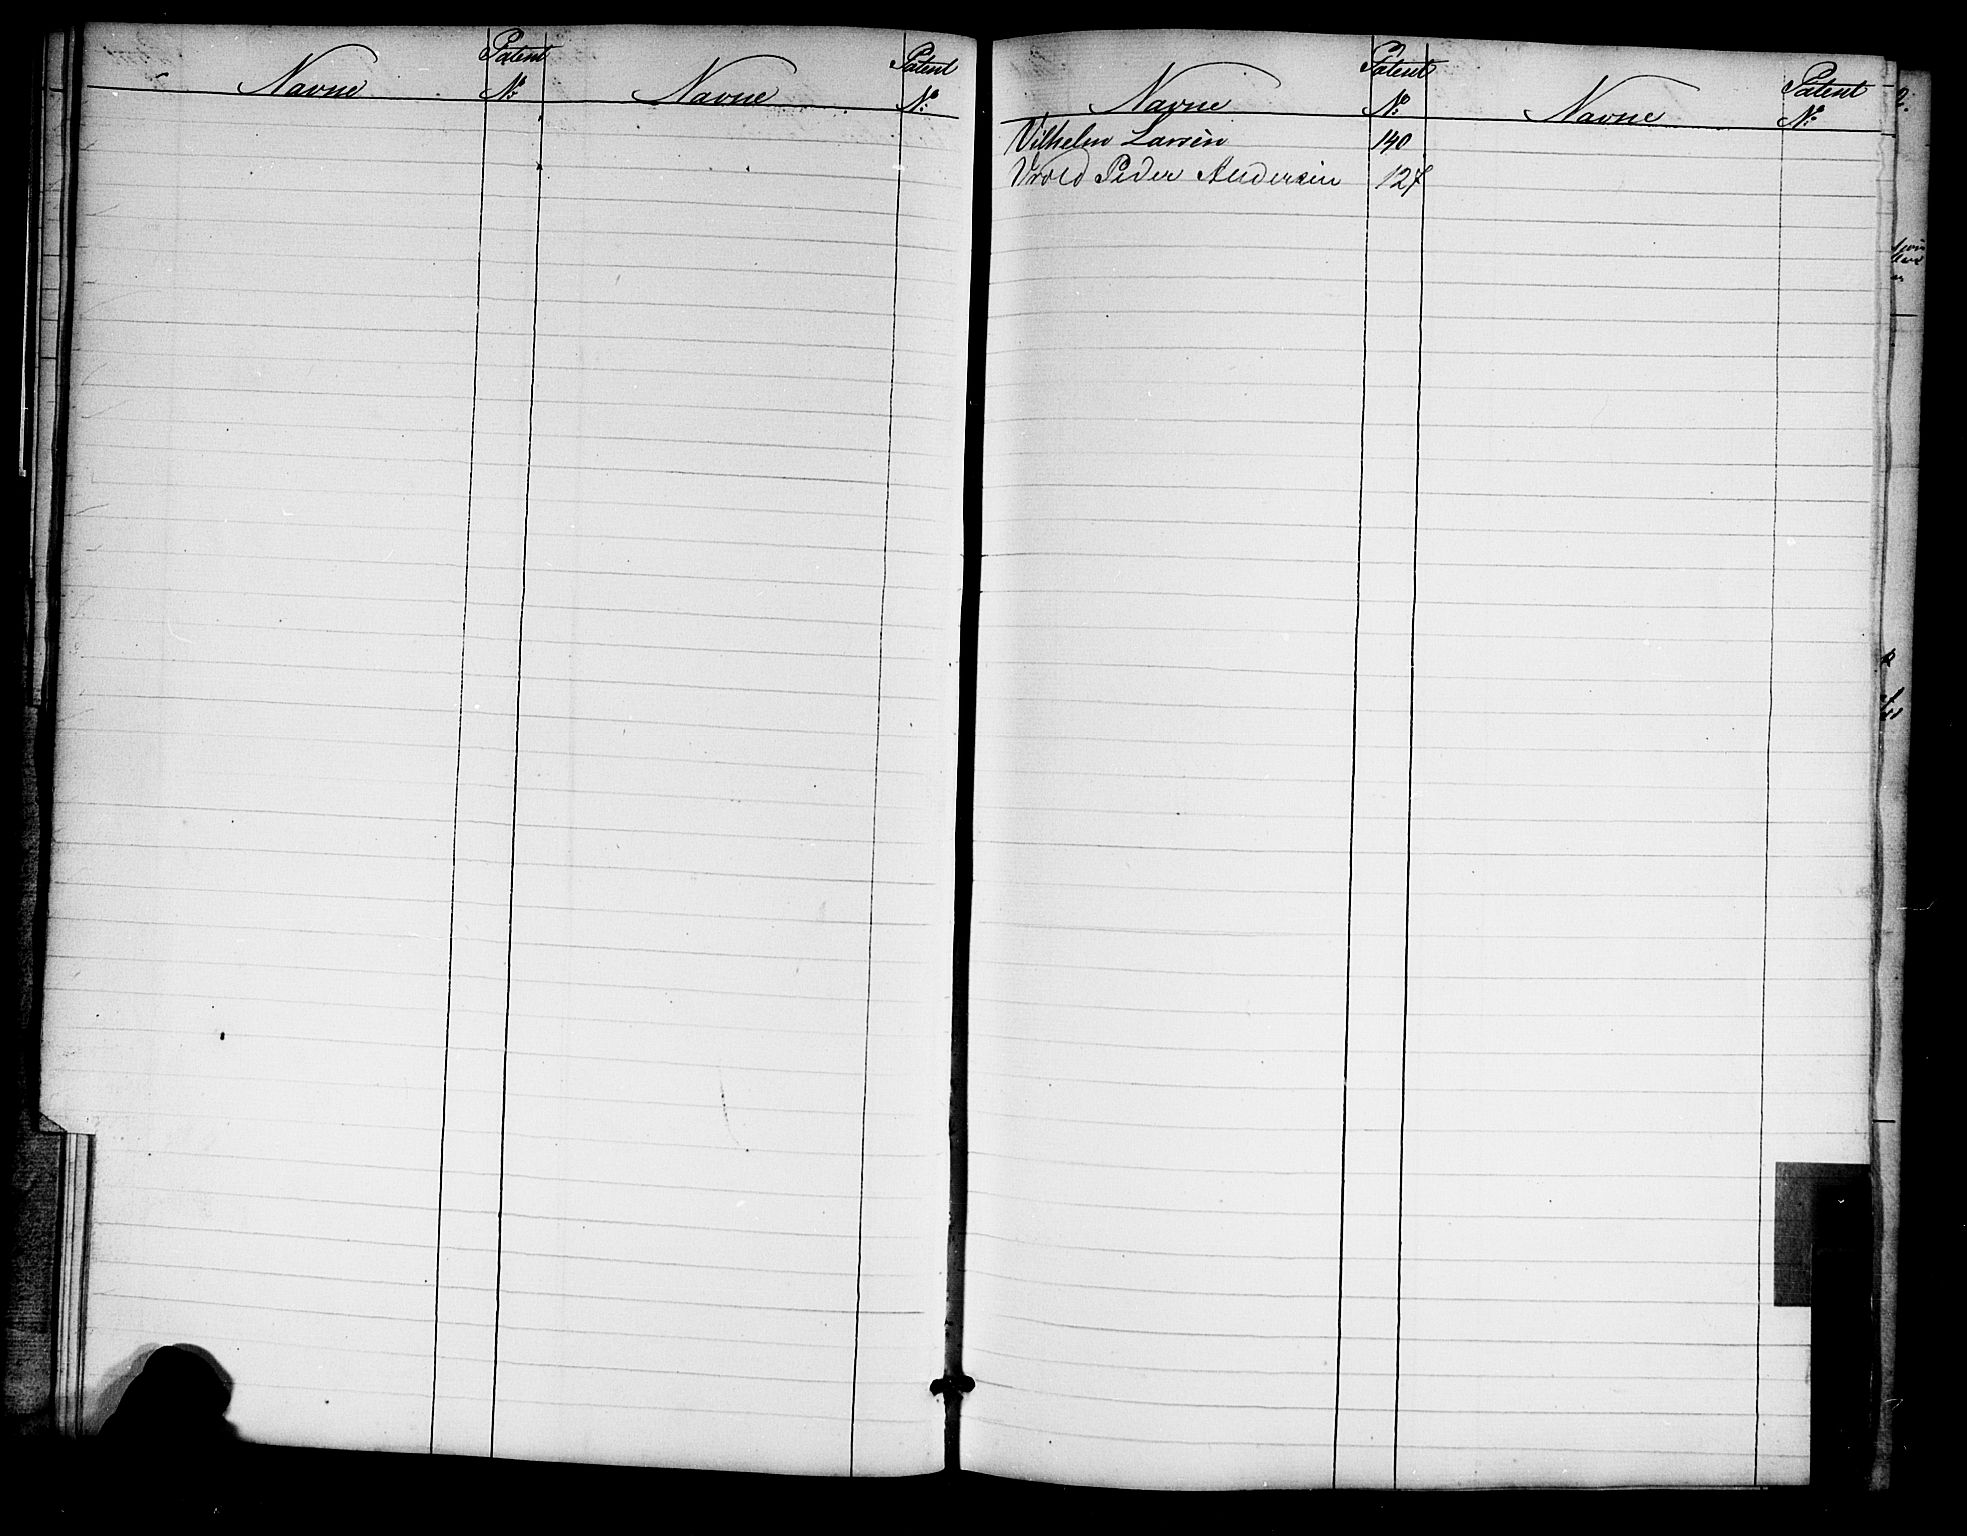 Navne Patent Nº Navne Patent Nº
Navne Patent Nº Navne Patent Nº
Vilhelm Larsen 140
Vrold Peder Andersen 127
2.